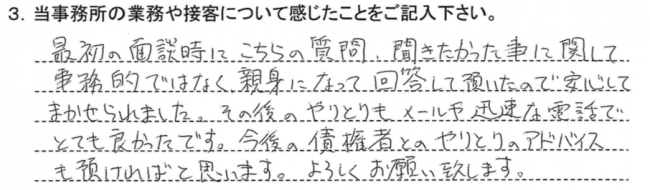 3. 当事務所の業務や接客について感じたことをご記入下さい。
最初の面談時にこちらの質問、聞きたかった事に関して
事務的ではなく、親身になって回答して頂いたので安心して
まかせられました。その後のやりとりもメールや迅速な電話で
とても良かったです。今後の債権者とのやりとりのアドバイス
も預ければと思います。よろしくお願い致します。